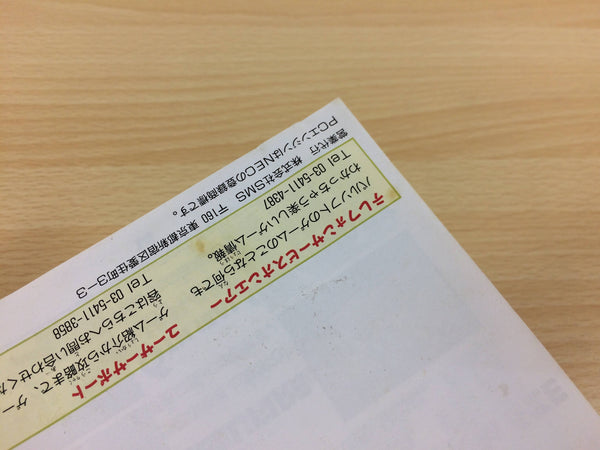 テレフォンサービスオンエアー
パルソフトのゲームのことなら何でも
わかっちゃう楽しいゲーム情報。
Tel 03-5411-4387
ユーザーサポート
ゲーム紹介から攻略まで、ゲー
容はこちらへお問い合わせくだ
Tel 03-5411-3858
営業代行 株式会社SMS 〒160 東京都新宿区愛住町3-3
PCエンジンはNECの登録商標です。